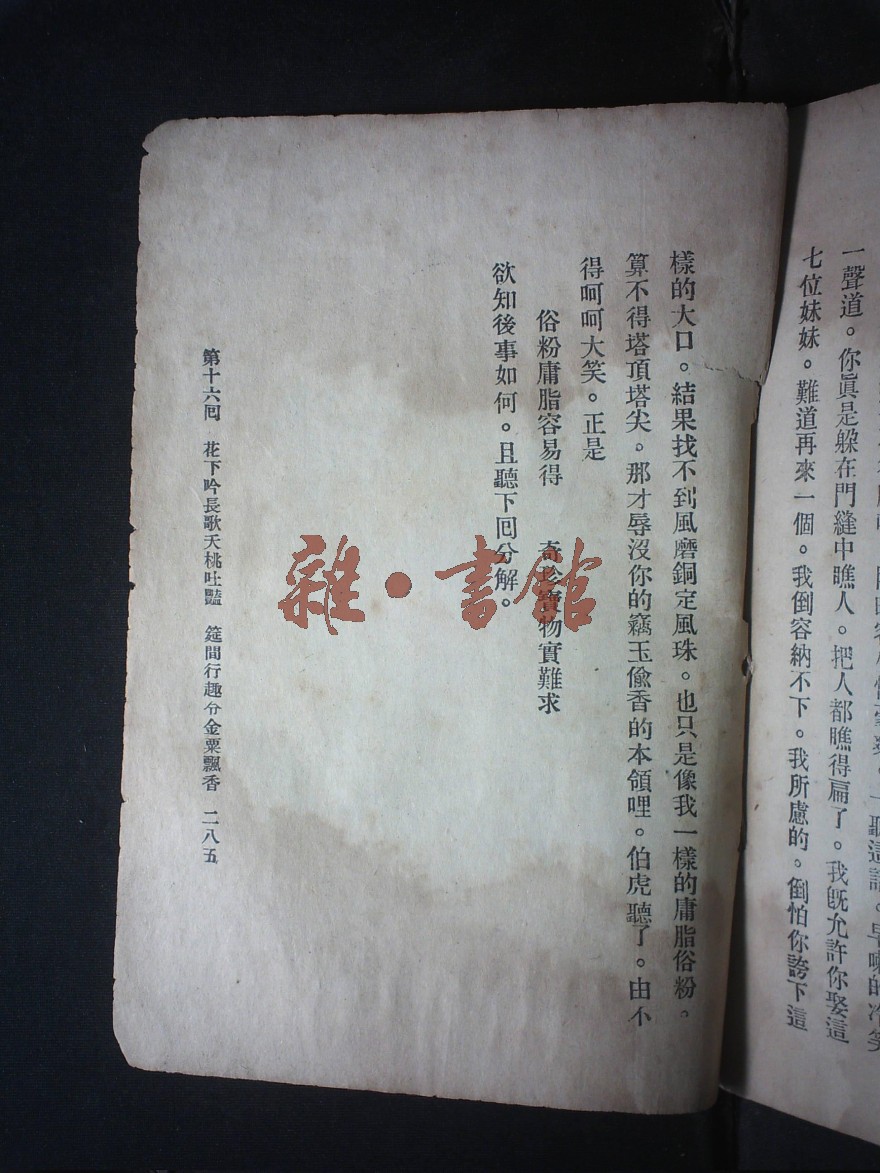 聽這話。早
一聲道。你眞是躱在門縫中瞧人。把人都瞧得扁了。我旣允許你娶這
七位妹妹。難道再來一個。我倒容納不下。我所慮的。倒怕你誇下這
樣的大口。結果找不到風磨銅定風珠。也只是像我一樣的庸脂俗粉。
算不得塔頂塔尖。那才辱沒你的竊玉偷香的本領哩。伯虎聽了。由不
得呵呵大笑。正是
俗粉庸脂容易得 奇珍寶物實難求
欲知後事如何。且聽下回分解。
第十六回 花下吟長歌夭桃吐豔 筵間行趣令金粟飄香 二八五
雜·書館